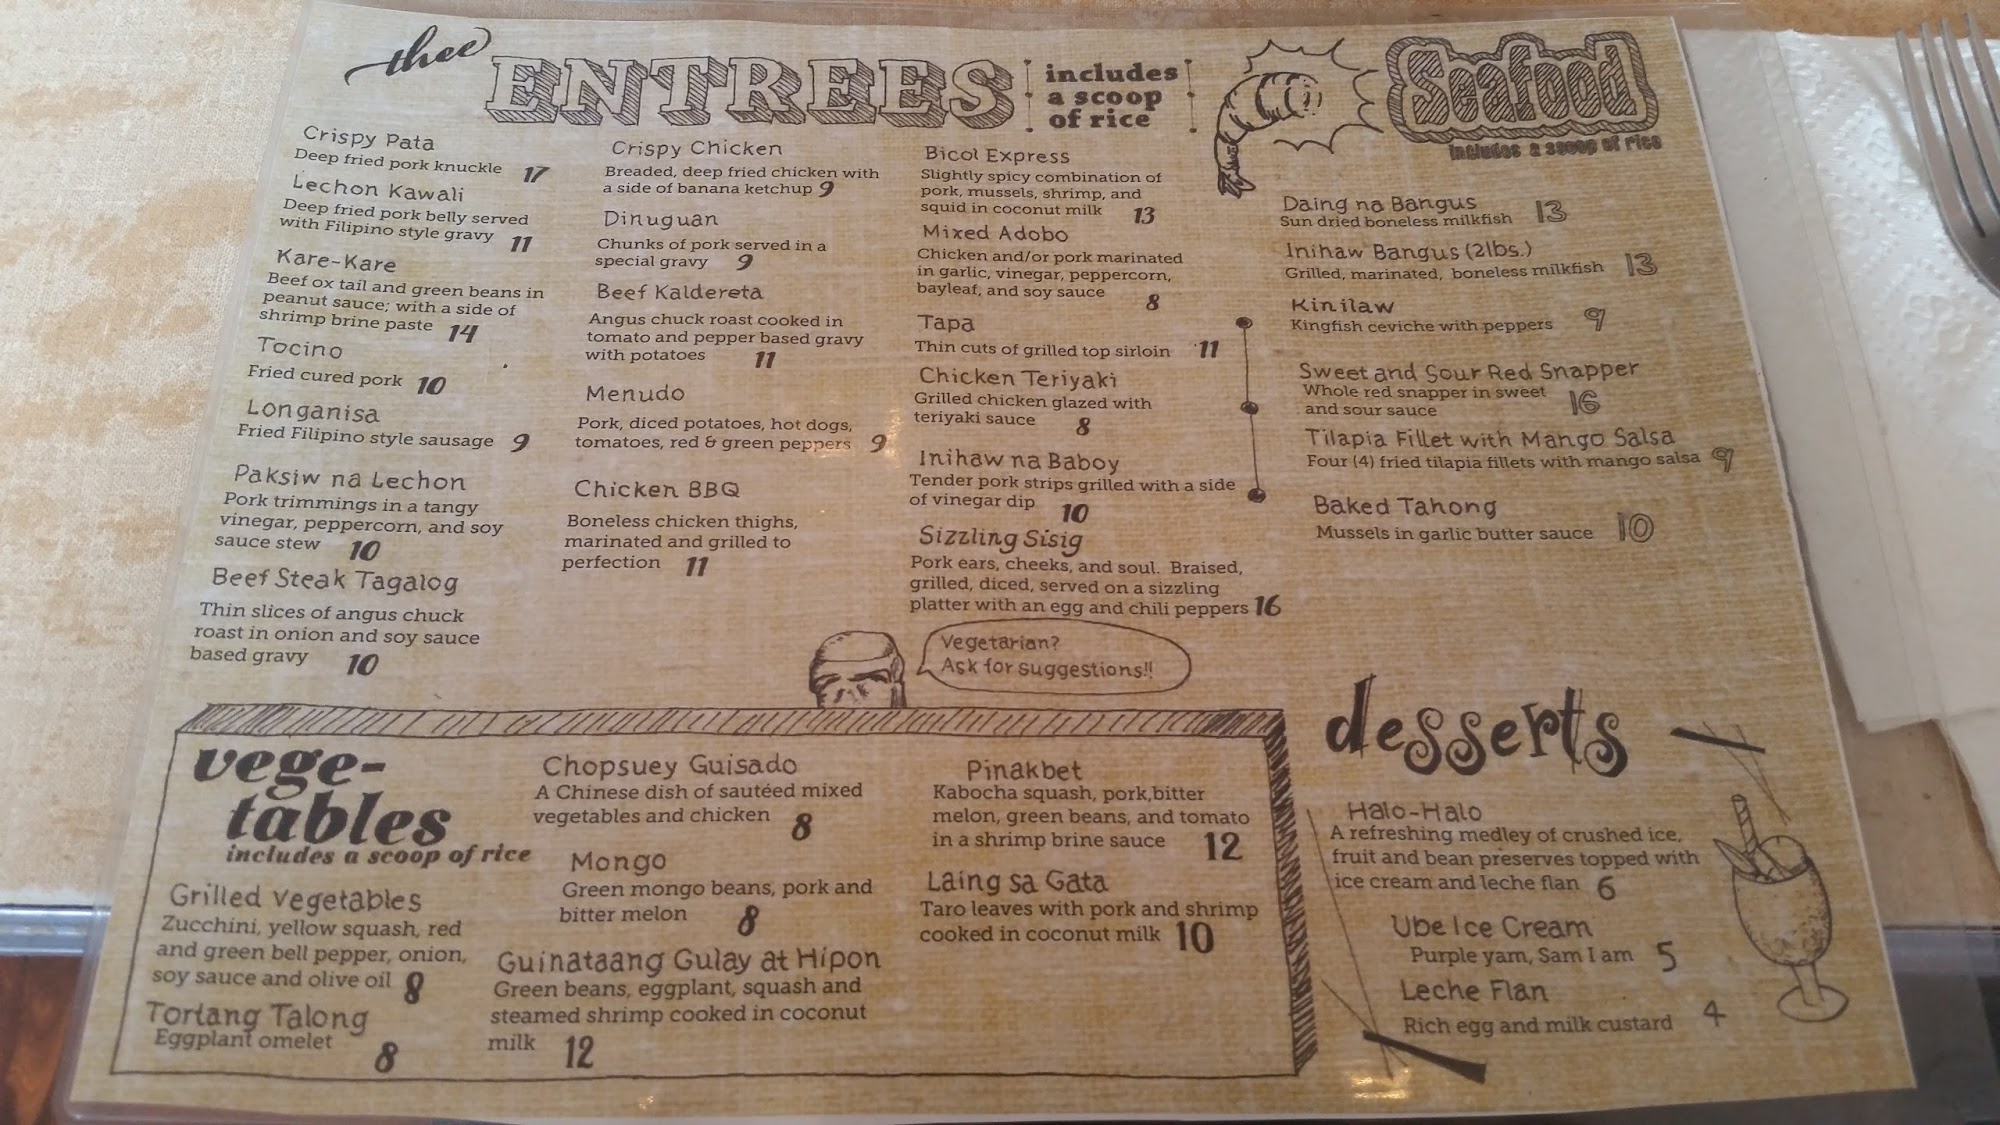 thee ENTREES
includes
a scoop
of rice
Crispy Pata
Deep fried pork knuckle 17
Lechon Kawali
Deep fried pork belly served
with Filipino style gravy 11
Kare-Kare
Beef ox tail and green beans in
peanut sauce; with a side of
shrimp brine paste 14
Tocino
Fried cured pork 10
Longanisa
Fried Filipino style sausage 9
Paksiw na Lechon
Pork trimmings in a tangy
vinegar, peppercorn, and soy
sauce stew 10
Beef Steak Tagalog
Thin slices of angus chuck
roast in onion and soy sauce
based gravy 10
Crispy Chicken
Breaded, deep fried chicken with
a side of banana ketchup 9
Dinuguan
Chunks of pork served in a
special gravy 9
Beef Kaldereta
Angus chuck roast cooked in
tomato and pepper based gravy
with potatoes 11
Menudo
Pork, diced potatoes, hot dogs,
tomatoes, red & green peppers 9
Chicken BBQ
Boneless chicken thighs,
marinated and grilled to
perfection 11
Bicol Express
Slightly spicy combination of
pork, mussels, shrimp, and
squid in coconut milk 13
Mixed Adobo
Chicken and/or pork marinated
in garlic, vinegar, peppercorn,
bayleaf, and soy sauce 8
Tapa
Thin cuts of grilled top sirloin 11
Chicken Teriyaki
Grilled chicken glazed with
teriyaki sauce 8
Inihaw na Baboy
Tender pork strips grilled with a side
of vinegar dip 10
Sizzling Sisig
Pork ears, cheeks, and soul. Braised,
grilled, diced, served on a sizzling
platter with an egg and chili peppers 16
Seafood
includes a scoop of rice
Daing na Bangus
Sun dried boneless milkfish 13
Inihaw Bangus (2lbs.)
Grilled, marinated, boneless milkfish 13
Kinilaw
Kingfish ceviche with peppers 9
Sweet and Sour Red Snapper
Whole red snapper in sweet
and sour sauce 16
Tilapia Fillet with Mango Salsa
Four (4) fried tilapia fillets with mango salsa 9
Baked Tahong
Mussels in garlic butter sauce 10
Vegetarian?
Ask for suggestions!!
vege-
tables
includes a scoop of rice
Grilled Vegetables
Zucchini, yellow squash, red
and green bell pepper, onion,
soy sauce and olive oil 8
Tortang Talong
Eggplant omelet 8
Chopsuey Guisado
A Chinese dish of sautéed mixed
vegetables and chicken 8
Mongo
Green mongo beans, pork and
bitter melon 8
Guinataang Gulay at Hipon
Green beans, eggplant, squash and
steamed shrimp cooked in coconut
milk 12
Pinakbet
Kabocha squash, pork,bitter
melon, green beans, and tomato
in a shrimp brine sauce 12
Laing sa Gata
Taro leaves with pork and shrimp
cooked in coconut milk 10
desserts
Halo-Halo
A refreshing medley of crushed ice,
fruit and bean preserves topped with
ice cream and leche flan 6
Ube Ice Cream
Purple yam, Sam I am 5
Leche Flan
Rich egg and milk custard 4